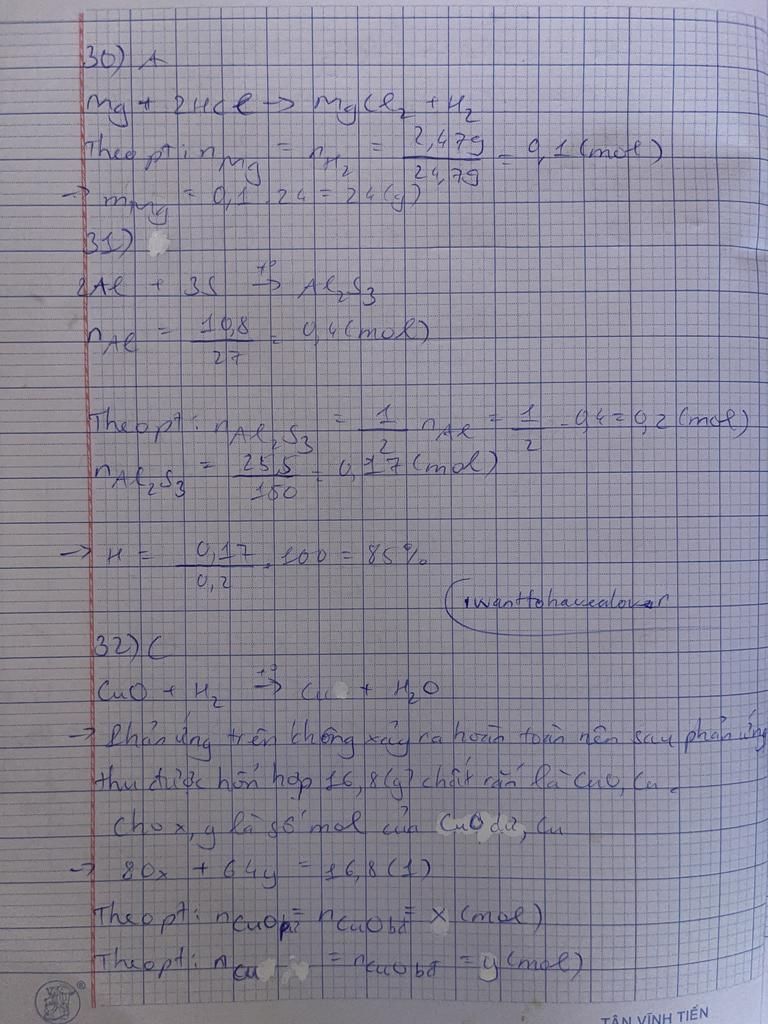 30) A
Mg + 2HCl → MgCl₂ + H₂
Theo pt: n Mg = n H₂ = 2,479 / 24,79 = 0,1 (mol)
→ m Mg = 0,1 . 24 = 24 (g)
31)
2Al + 3S t° → Al₂S₃
n Al = 10,8 / 27 = 0,4 (mol)
Theo pt: n Al₂S₃ = 1/2 n Al = 1/2 . 0,4 = 0,2 (mol)
n Al₂S₃ = 25,5 / 150 = 0,17 (mol)
→ H = 0,17 / 0,2 . 100 = 85%
iwanttohavealover
32) C
CuO + H₂ t° → Cu + H₂O
→ Phản ứng trên không xảy ra hoàn toàn nên sau phản ứng
thu được hỗn hợp 16,8 (g) chất rắn là CuO, Cu.
Cho x, y là số mol của CuO dư, Cu
→ 80x + 64y = 16,8 (1)
Theo pt: n CuO = n CuO bđ = x (mol)
Theo pt: n Cu = n CuO bđ = y (mol)
TÂN VĨNH TIẾN